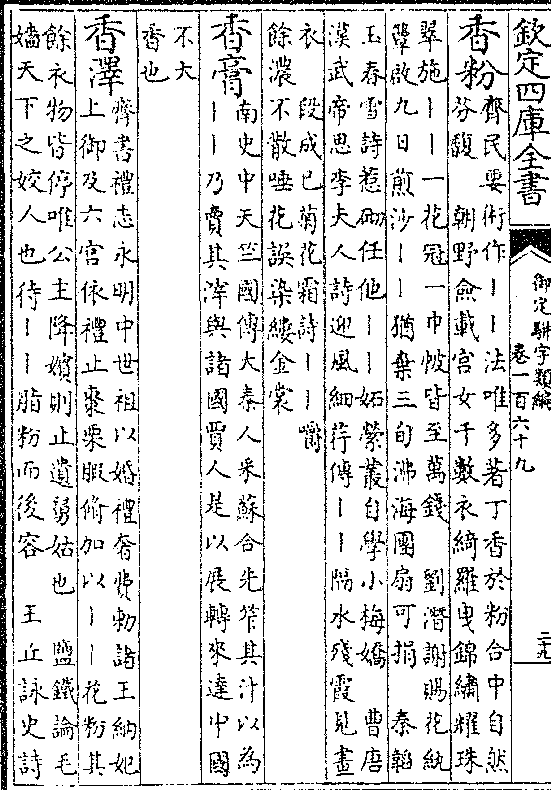 欽定四庫全書
御定駢字類編
卷一百六十九
二十九
香粉
齊民要術作丨丨法唯多著丁香於粉合中自然
芬馥　朝野僉載宮女千數衣綺羅曳錦繡耀珠
翠施丨丨一花冠一巾帔皆至萬錢　劉潛謝賜花紈
簟啟九日煎沙丨丨猶棄三旬沸海團扇可捐　秦韜
玉春雪詩惹砌任他丨丨妬縈叢自學小梅嬌　曹唐
漢武帝思李夫人詩迎風細荇傳丨丨隔水殘霞見畫
衣　段成已菊花霜詩丨丨嚼
餘濃不散唾花誤染縷金裳
香膏
南史中天竺國傳大秦人采蘇合先笮其汁以為
丨丨乃賣其滓與諸國賈人是以展轉來達中國
不大
香也
香澤
齊書禮志永明中世祖以婚禮奢費勅諸王納妃
上御及六宮依禮止棗栗腶脩加以丨丨花粉其
餘衣物皆停唯公主降嬪則止遺舅姑也　鹽鐵論毛
嬙天下之姣人也待丨丨脂粉而後容　王丘詠史詩